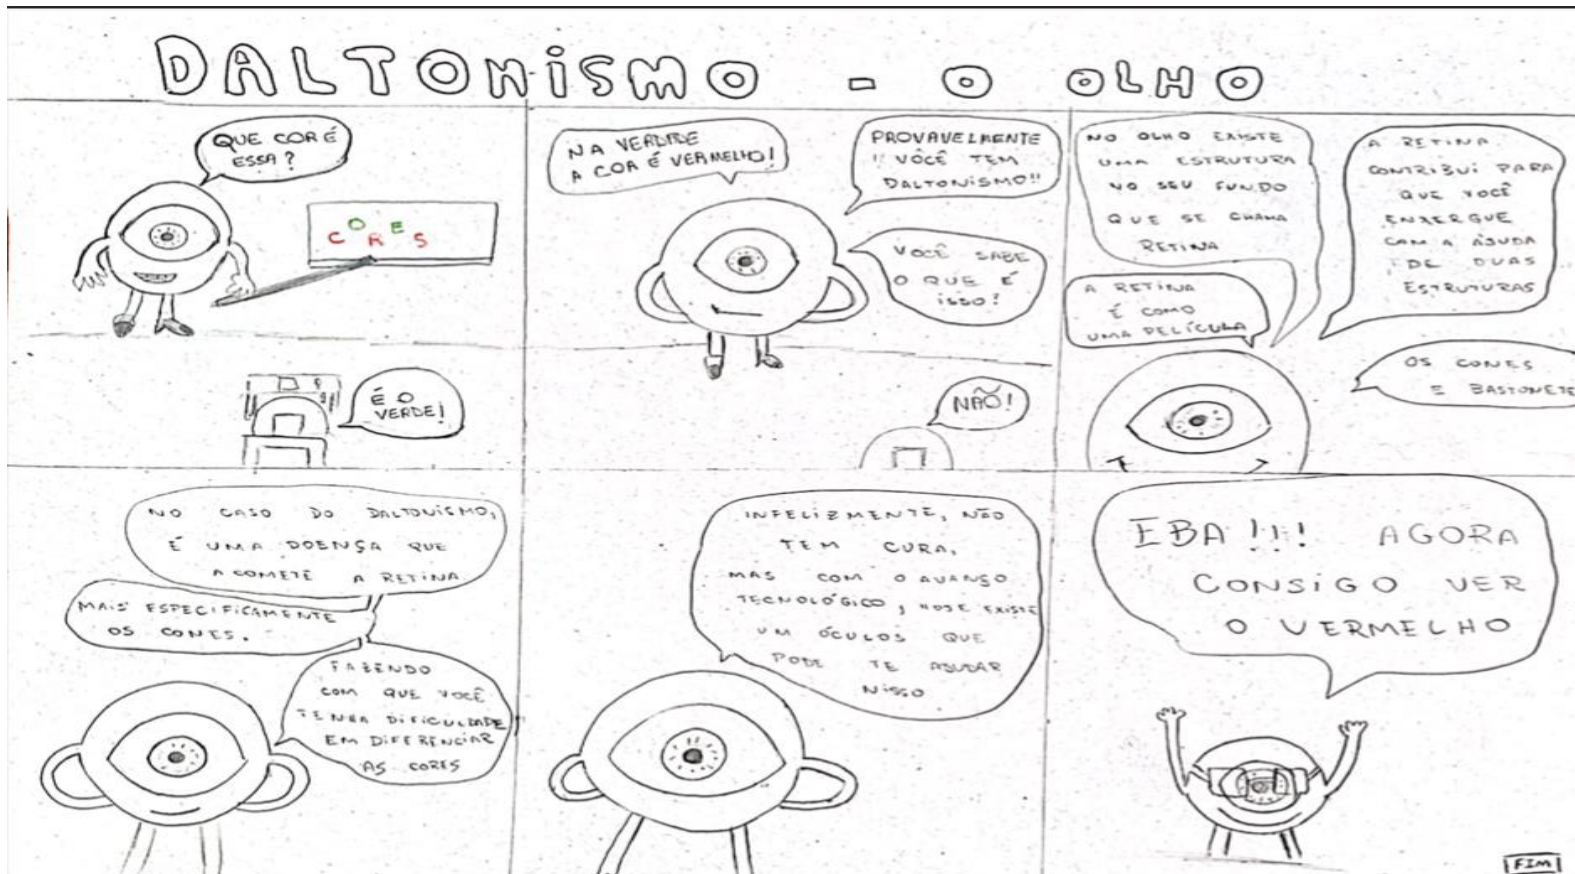 DALTONISMO - O OLHO
QUE COR É
ESSA?
CORES
É O
VERDE!
NA VERDADE
A COR É VERMELHO!
PROVAVELMENTE
VOCÊ TEM
DALTONISMO!!
VOCÊ SABE
O QUE É
ISSO?
NÃO!
NO OLHO EXISTE
UMA ESTRUTURA
NO SEU FUNDO
QUE SE CHAMA
RETINA
A RETINA
É COMO
UMA PELÍCULA
A RETINA
CONTRIBUI PARA
QUE VOCÊ
ENXERGUE
COM A AJUDA
DE DUAS
ESTRUTURAS
OS CONES
E BASTONETE
NO CASO DO DALTONISMO,
É UMA DOENÇA QUE
ACOMETE A RETINA
MAIS ESPECIFICAMENTE
OS CONES.
FAZENDO
COM QUE VOCÊ
TENHA DIFICULDADE
EM DIFERENCIAR
AS CORES
INFELIZMENTE, NÃO
TEM CURA,
MAS COM O AVANSO
TECNOLÓGICO, HOJE EXISTE
UM ÓCULOS QUE
PODE TE AJUDAR
NISSO
EBA!!! AGORA
CONSIGO VER
O VERMELHO
FIM